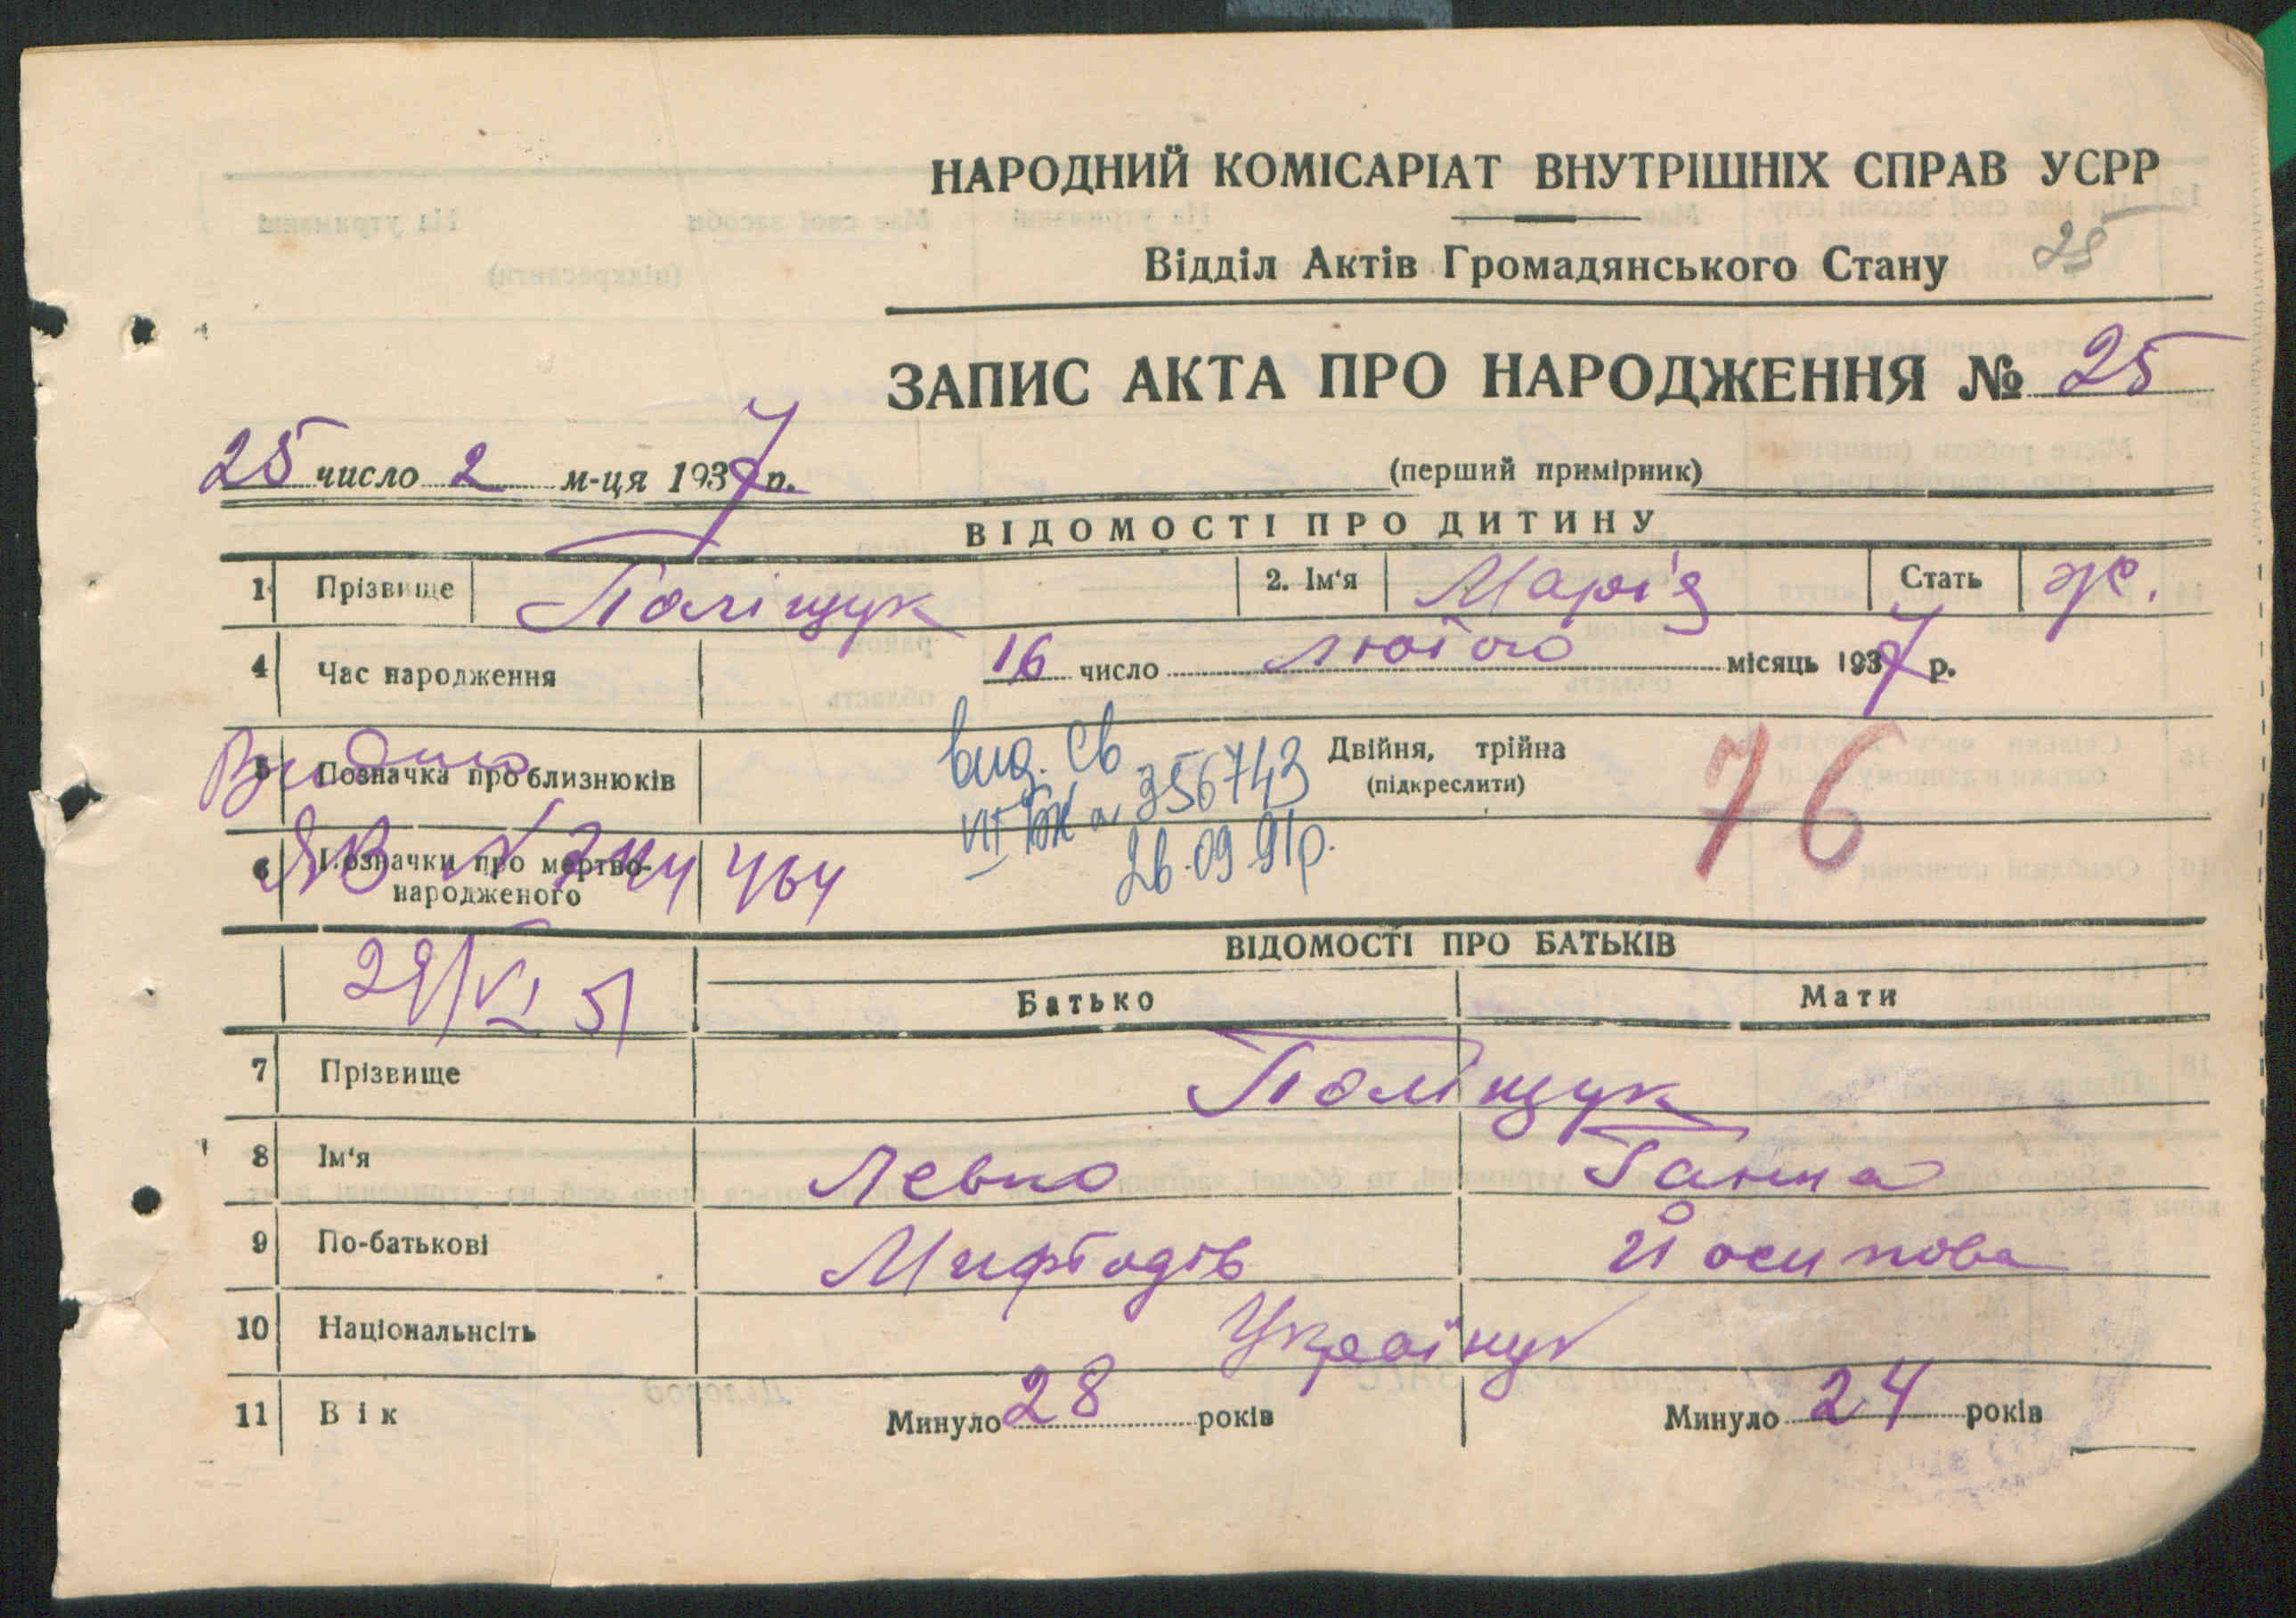 НАРОДНИЙ КОМІСАРІАТ ВНУТРІШНІХ СПРАВ УСРР
Відділ Актів Громадянського Стану 25
ЗАПИС АКТА ПРО НАРОДЖЕННЯ № 25
25 число 2 м-ця 1937 р. (перший примірник)
ВІДОМОСТІ ПРО ДИТИНУ
1 Прізвище Поліщук 2. Ім'я Марія Стать ж.
4 Час народження 16 число лютого місяць 1937 р.
5 Позначка про близнюків Двійня, трійна
(підкреслити)
Видано
вид. св.
356743
26.09.91р.
76
6 Позначки про мертво-
народженого
ЯВ № 744464
29/VI 51
ВІДОМОСТІ ПРО БАТЬКІВ
Батько Мати
7 Прізвище Поліщук
8 Ім'я Левко Ганна
9 По-батькові Мифтодів Йосипова
10 Національнсіть Українці
11 Вік Минуло 28 років Минуло 24 років